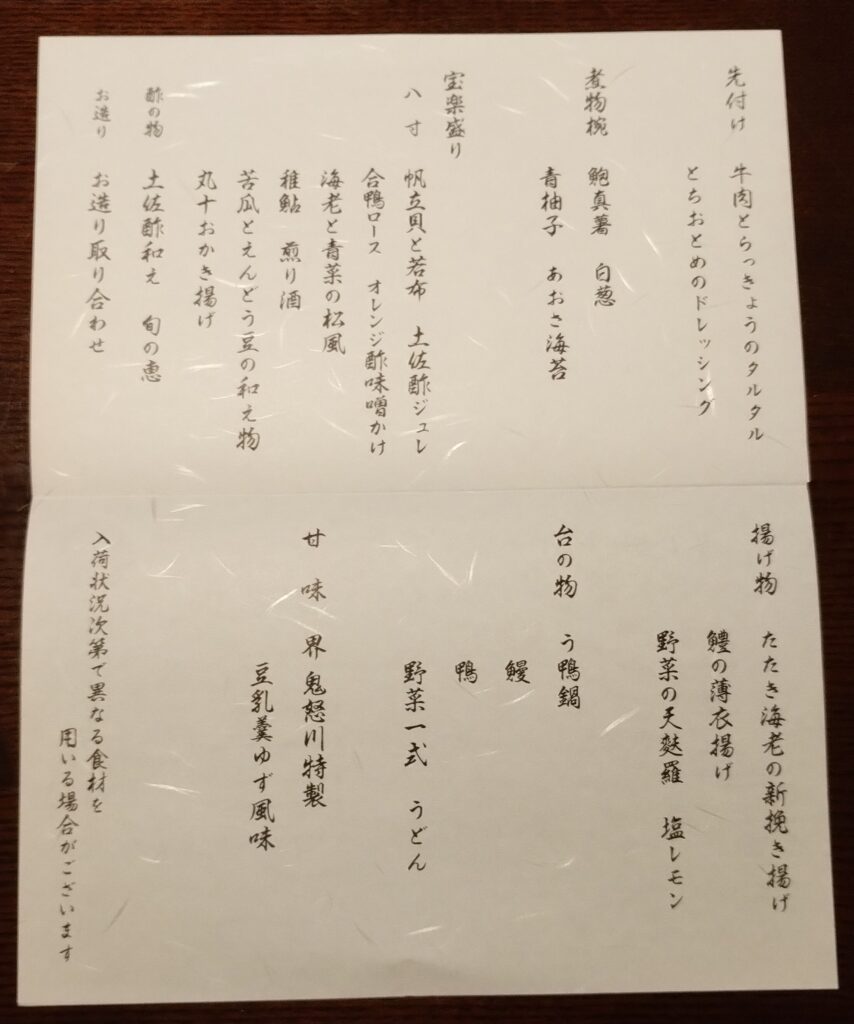 先付け　牛肉とらっきょうのタルタル
とちおとめのドレッシング
煮物椀　鮑真薯　白葱
青柚子　あおさ海苔
宝楽盛り
八寸　帆立貝と若布　土佐酢ジュレ
合鴨ロース　オレンジ酢味噌かけ
海老と青菜の松風
稚鮎　煎り酒
苦瓜とえんどう豆の和え物
丸十おかき揚げ
酢の物　土佐酢和え　旬の恵
お造り　お造り取り合わせ
揚げ物　たたき海老の新挽き揚げ
鱧の薄衣揚げ
野菜の天麩羅　塩レモン
台の物　う鴨鍋
鰻
鴨
野菜一式　うどん
甘味　界 鬼怒川特製
豆乳羹ゆず風味
入荷状況次第で異なる食材を
用いる場合がございます